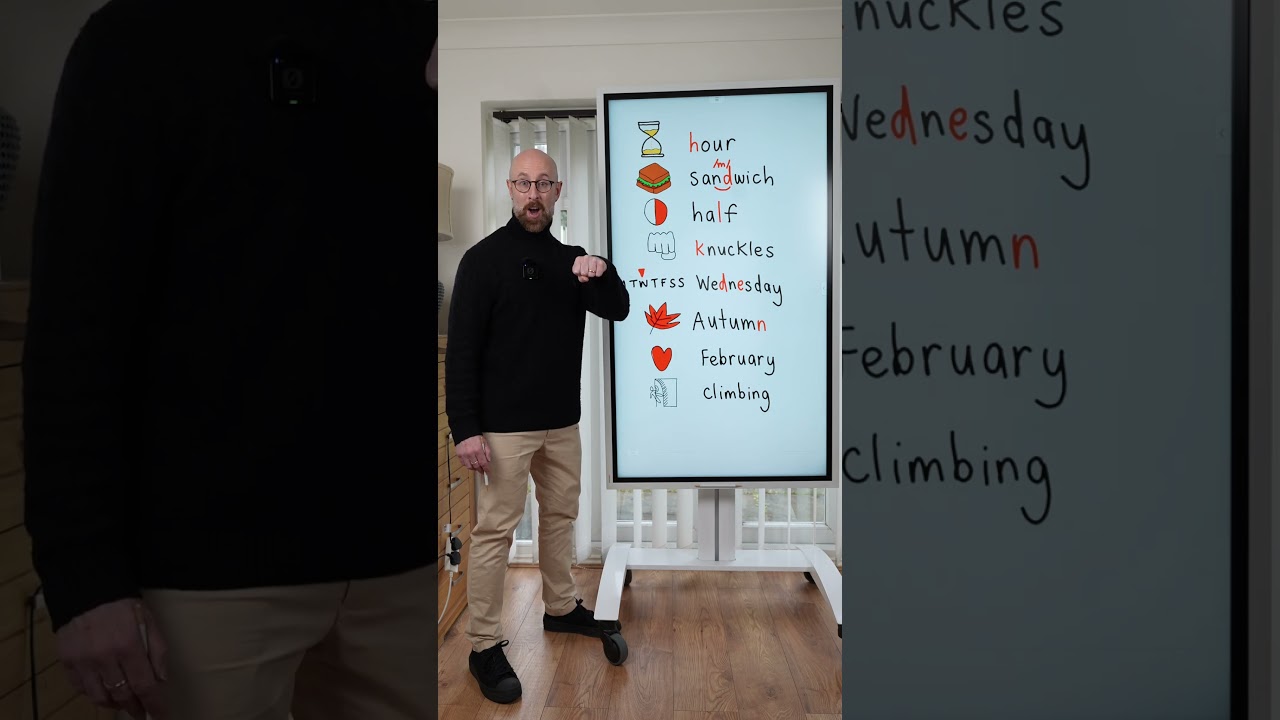 hour
/m/
sandwich
half
knuckles
TWTFSS Wednesday
Autumn
February
climbing
nuckles
Wednesday
utumn
February
climbing